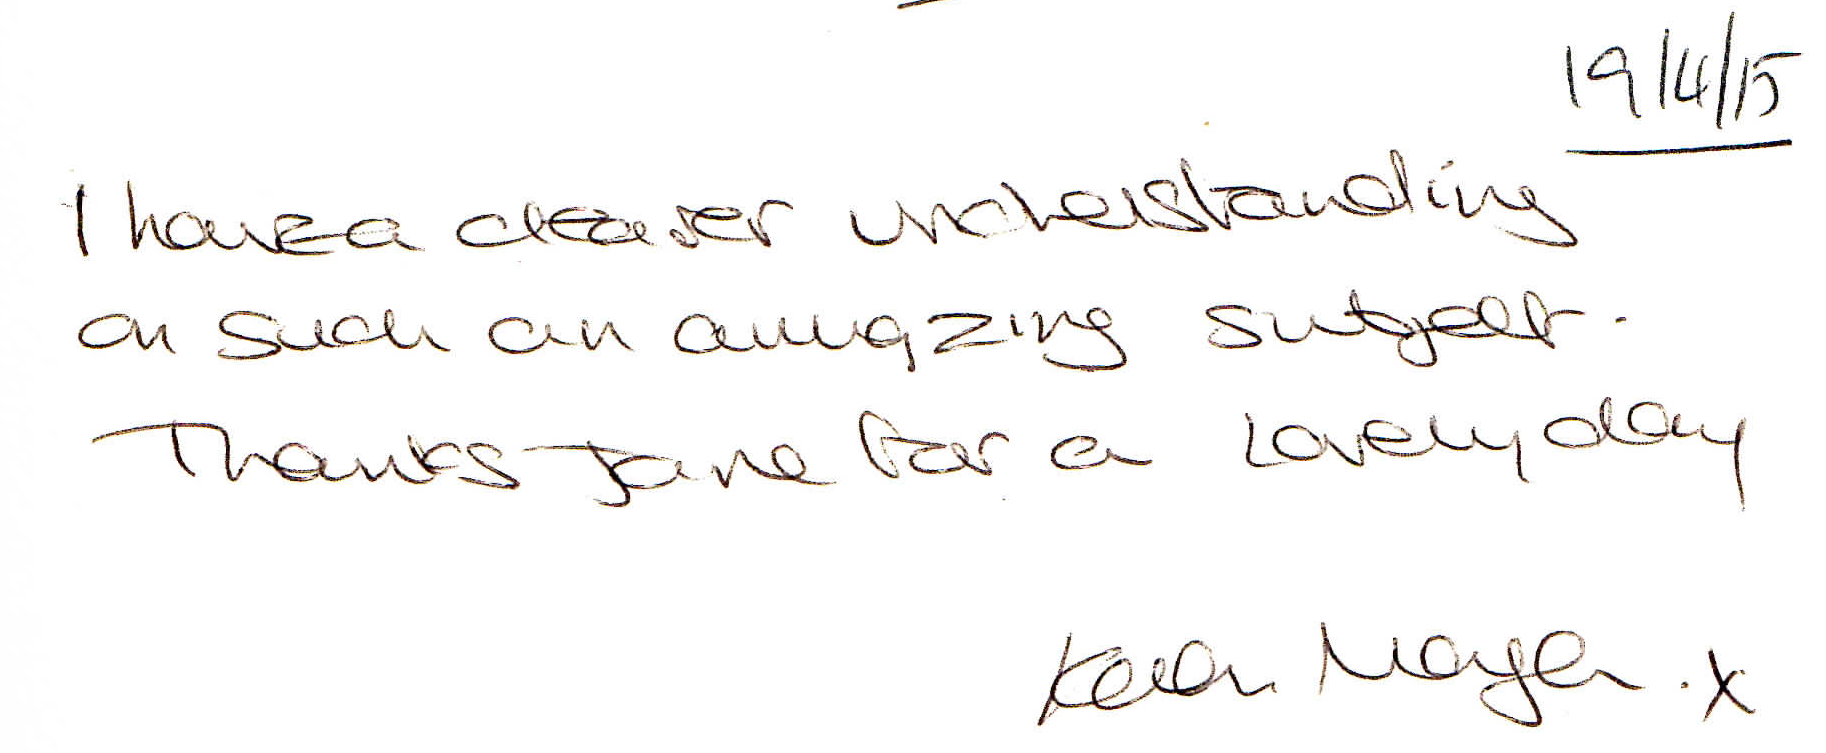 19/4/15
I have a clearer understanding
on such an amazing subject.
Thanks Jane for a Lovely day
Karen x